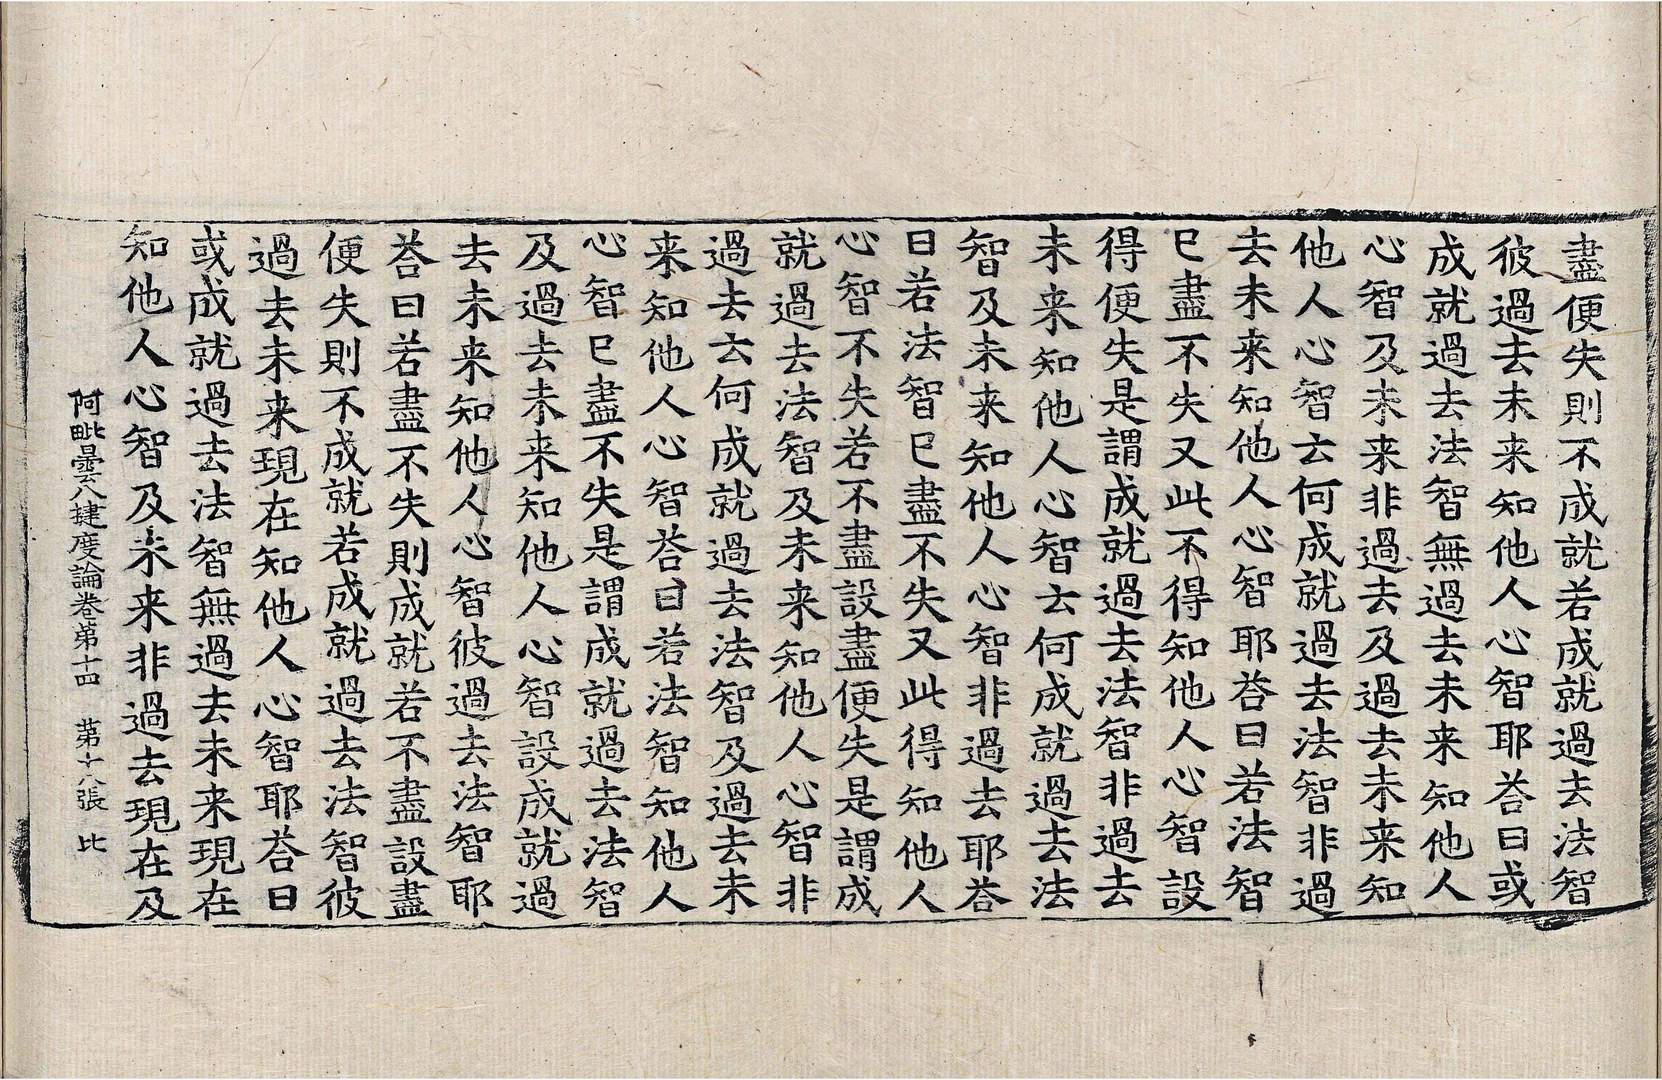 盡便失則不成就若成就過去法智
彼過去未来知他人心智耶荅曰或
成就過去法智無過去未来知他人
心智及未来非過去及過去未来知
他人心智云何成就過去法智非過
去未来知他人心智耶荅曰若法智
已盡不失又此不得知他人心智設
得便失是謂成就過去法智非過去
未来知他人心智云何成就過去法
智及未来知他人心智非過去耶荅
曰若法智已盡不失又此得知他人
心智不失若不盡設盡便失是謂成
就過去法智及未来知他人心智非
過去云何成就過去法智及過去未
来知他人心智荅曰若法智知他人
心智已盡不失是謂成就過去法智
及過去未来知他人心智設成就過
去未来知他人心智彼過去法智耶
荅曰若盡不失則成就若不盡設盡
便失則不成就若成就過去法智彼
過去未来現在知他人心智耶荅曰
或成就過去法智無過去未来現在
知他人心智及未来非過去現在及
阿毗曇八揵度論卷第十四 第十八張 比